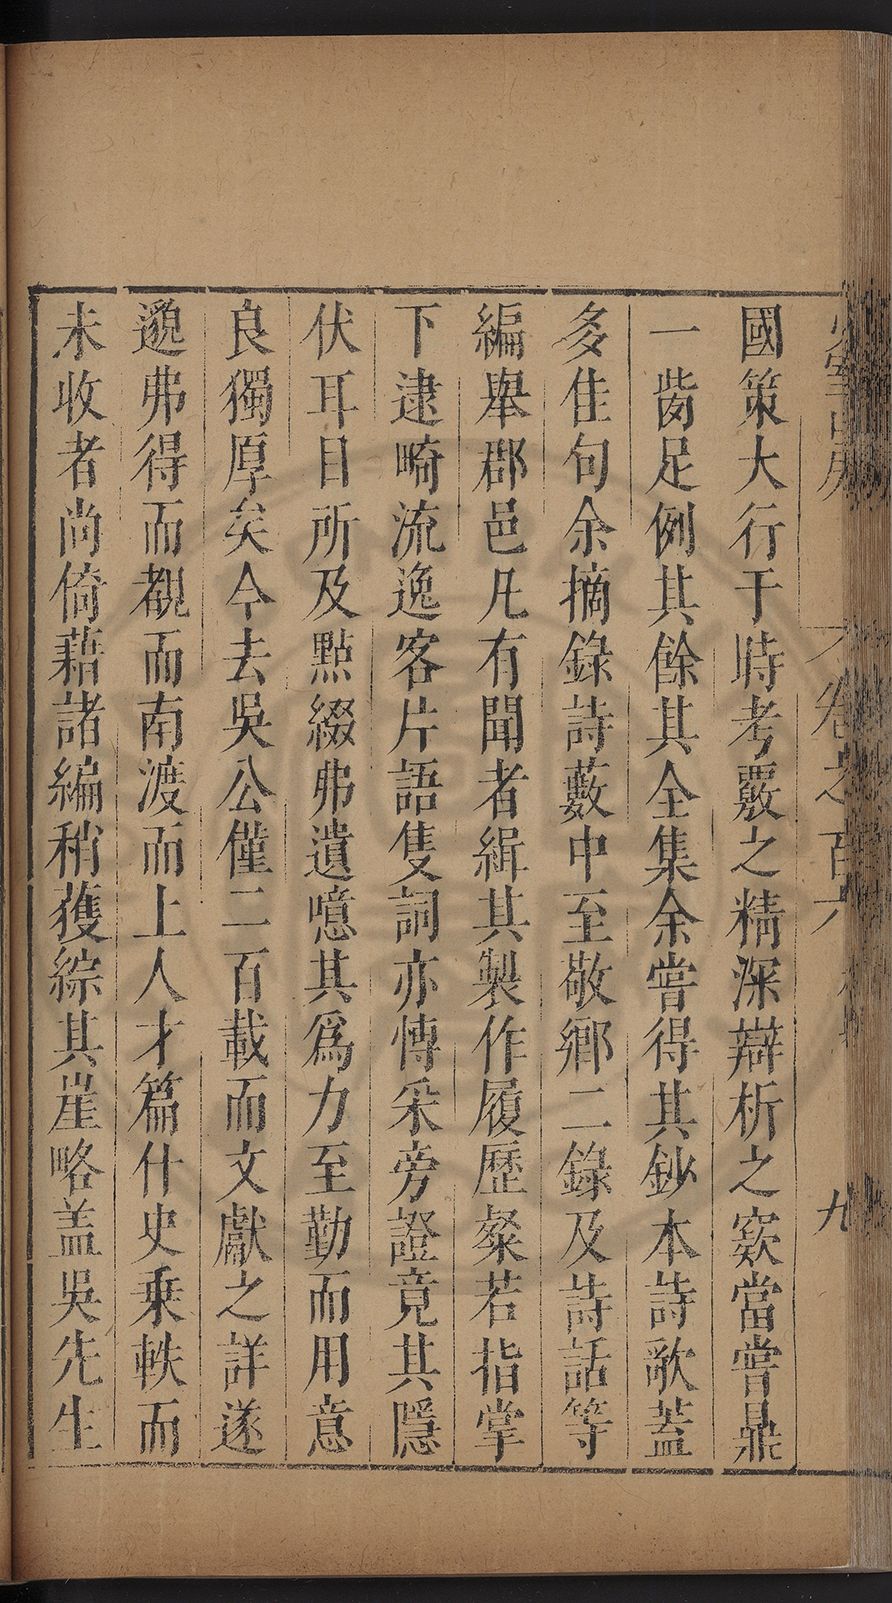 國策大行于時考覈之精深辯析之窾當嘗鼎
一胾足例其餘其全集余嘗得其鈔本詩歌蓋
多佳句余摘錄詩藪中至敬鄉二錄及詩話等
編舉郡邑凡有聞者緝其製作履歷粲若指掌
下逮畸流逸客片語隻詞亦慱采旁證竟其隱
伏耳目所及㸃綴弗遺噫其為力至勤而用意
良獨厚矣今去吳公僅二百載而文獻之詳遂
邈弗得而覩而南渡而上人才篇什史乗軼而
未收者尚倚藉諸編稍獲綜其崖略盖吳先生
卷之百六
九